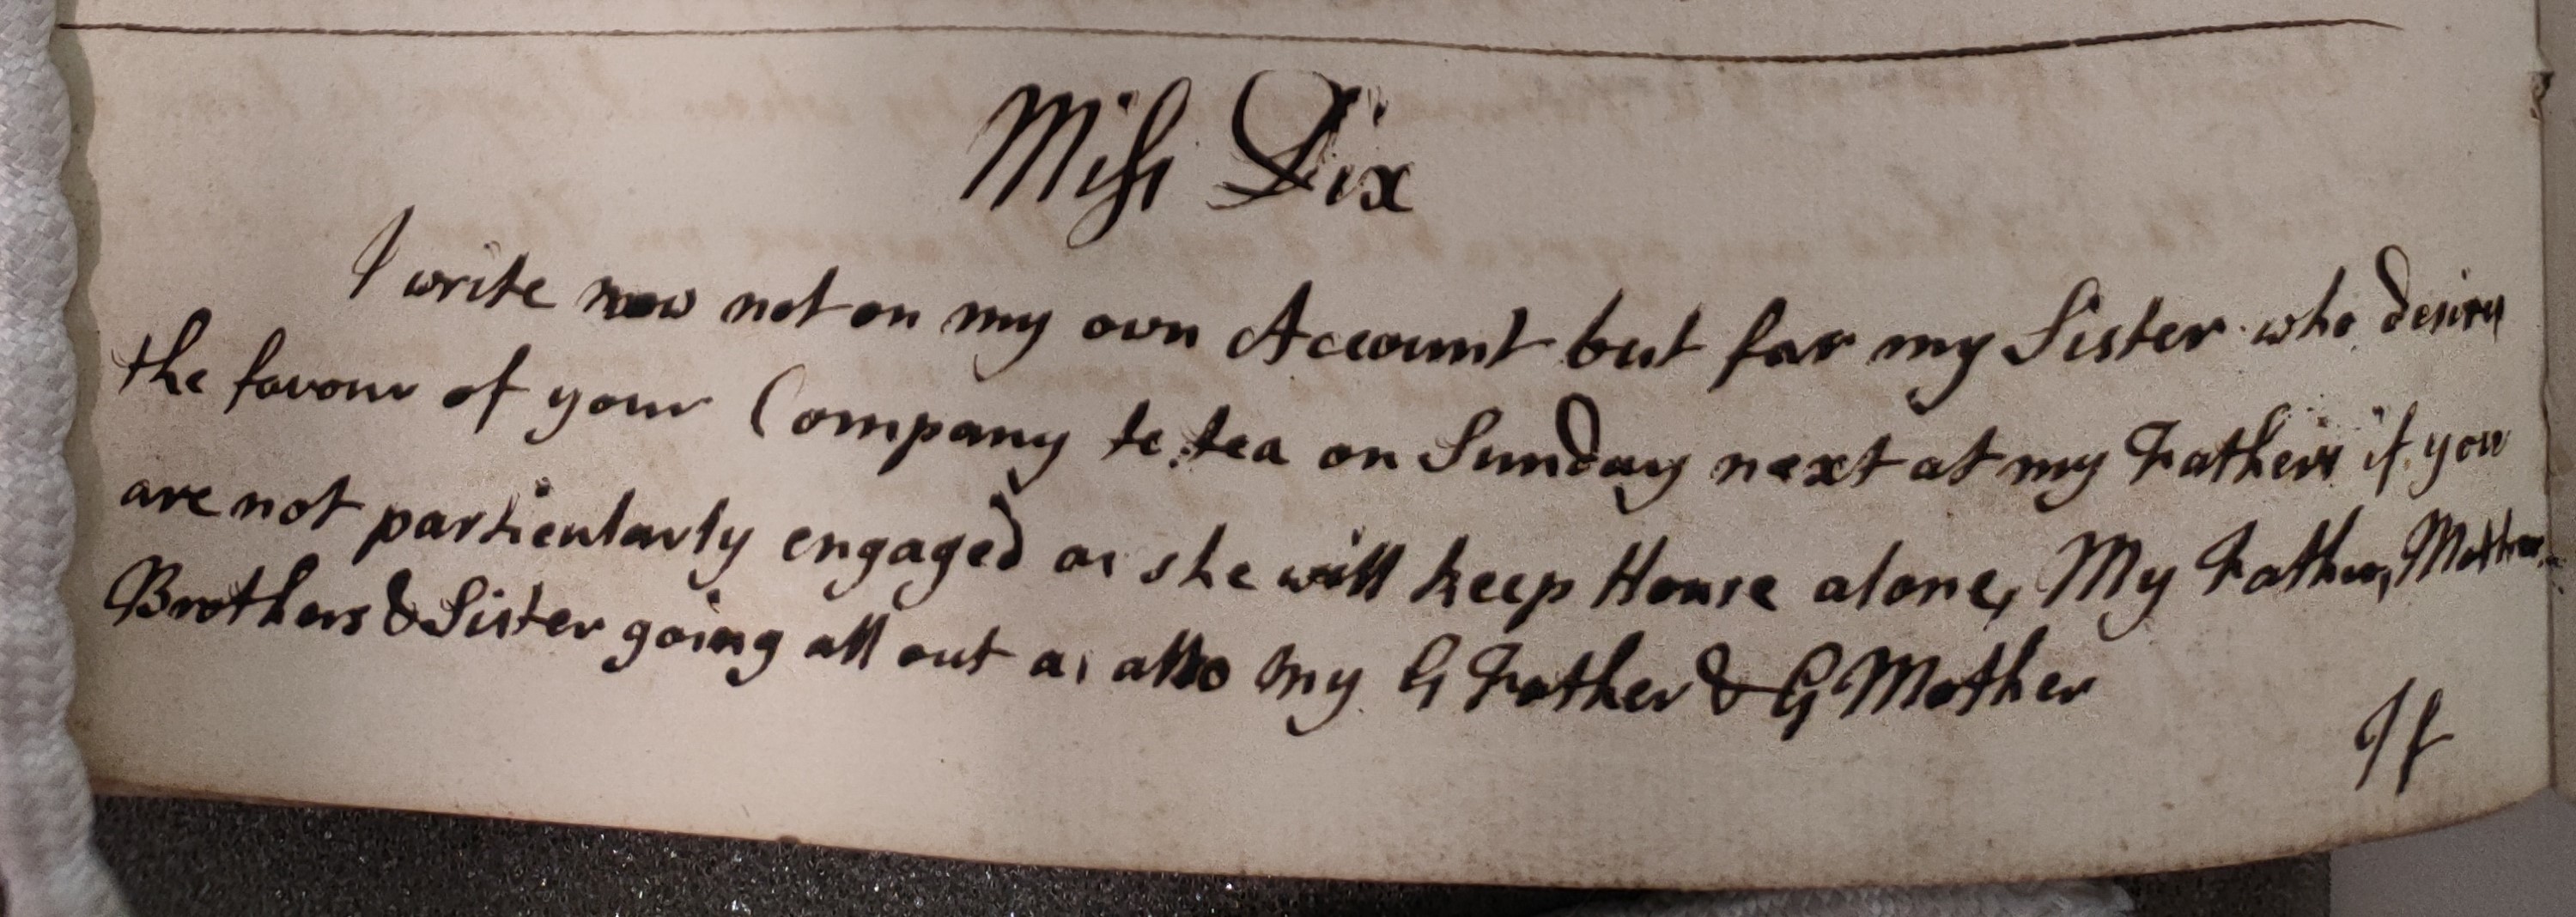 Miss Dix
I write now not on my own Account but for my Sister who desires
the favour of your Company to tea on Sunday next at my Fathers if you
are not particularly engaged as she will keep House alone, My Father, Mother,
Brothers & Sister going all out as also my G Father & G Mother
If